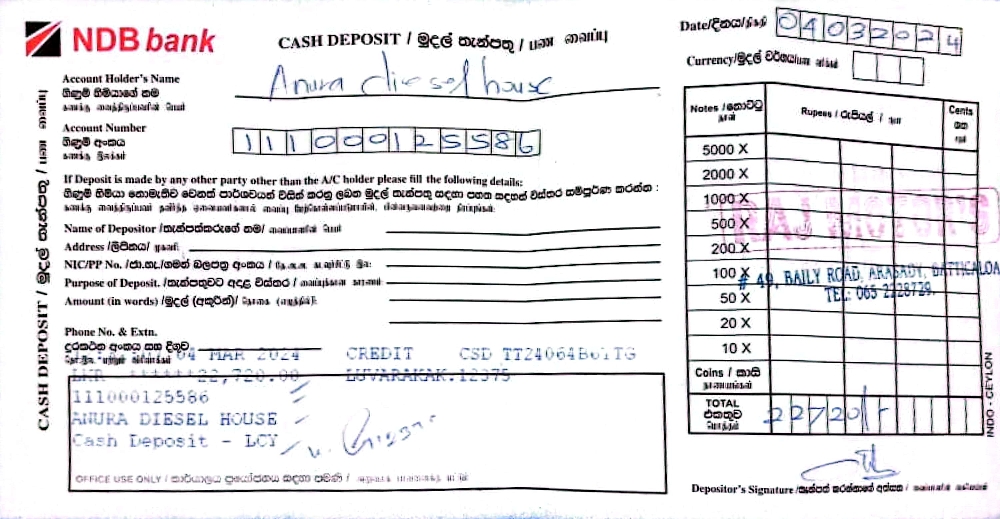 NDB bank
CASH DEPOSIT / මුදල් තැන්පතු / பண வைப்பு
Date/දිනය/திகதி 04032024
Currency/මුදල් වර්ගය/
Account Holder's Name
ගිණුම් හිමියාගේ නම
கணக்கு வைத்திருப்பவரின் பெயர்
Anura diesel house
Account Number
ගිණුම් අංකය
கணக்கு இலக்கம்
111000125586
If Deposit is made by any other party other than the A/C holder please fill the following details:
ගිණුම් හිමියා නොමැතිව වෙනත් පාර්ශවයක් විසින් කරනු ලබන මුදල් තැන්පතු සඳහා පහත සඳහන් විස්තර සම්පූර්ණ කරන්න :
Name of Depositor /තැන්පත්කරුගේ නම/
Address /ලිපිනය/ முகவரி
NIC/PP No. /ජා.හැ./ගමන් බලපත්‍ර අංකය /
Purpose of Deposit. /තැන්පතුවට අදාළ විස්තර /
Amount (in words) /මුදල (අකුරින්)/ தொகை (எழுத்தில்):
Phone No. & Extn.
දුරකථන අංකය සහ දිගුව
04 MAR 2024 CREDIT CSD
LKR ******22,720.00 LUVARAKAK.12375
111000125586
ANURA DIESEL HOUSE
Cash Deposit - LCY
OFFICE USE ONLY / කාර්යාලය ප්‍රයෝජනය සඳහා පමණි /
CASH DEPOSIT / මුදල් තැන්පතු / பண வைப்பு
Notes /නෝට්ටු
Rupees / රුපියල් / ரூபா
Cents
ශත
சதம்
5000 X
2000 X
1000 X
500 X
200 X
100 X
50 X
20 X
10 X
Coins / කාසි
நாணயங்கள்
TOTAL
එකතුව
மொத்தம்
22720/-
RAJ MOTORS
# 49, BAILY ROAD, ARASADY, BATTICALOA
TEL: 065 2228729.
Depositor's Signature /තැන්පත් කරන්නාගේ අත්සන /
INDO - CEYLON